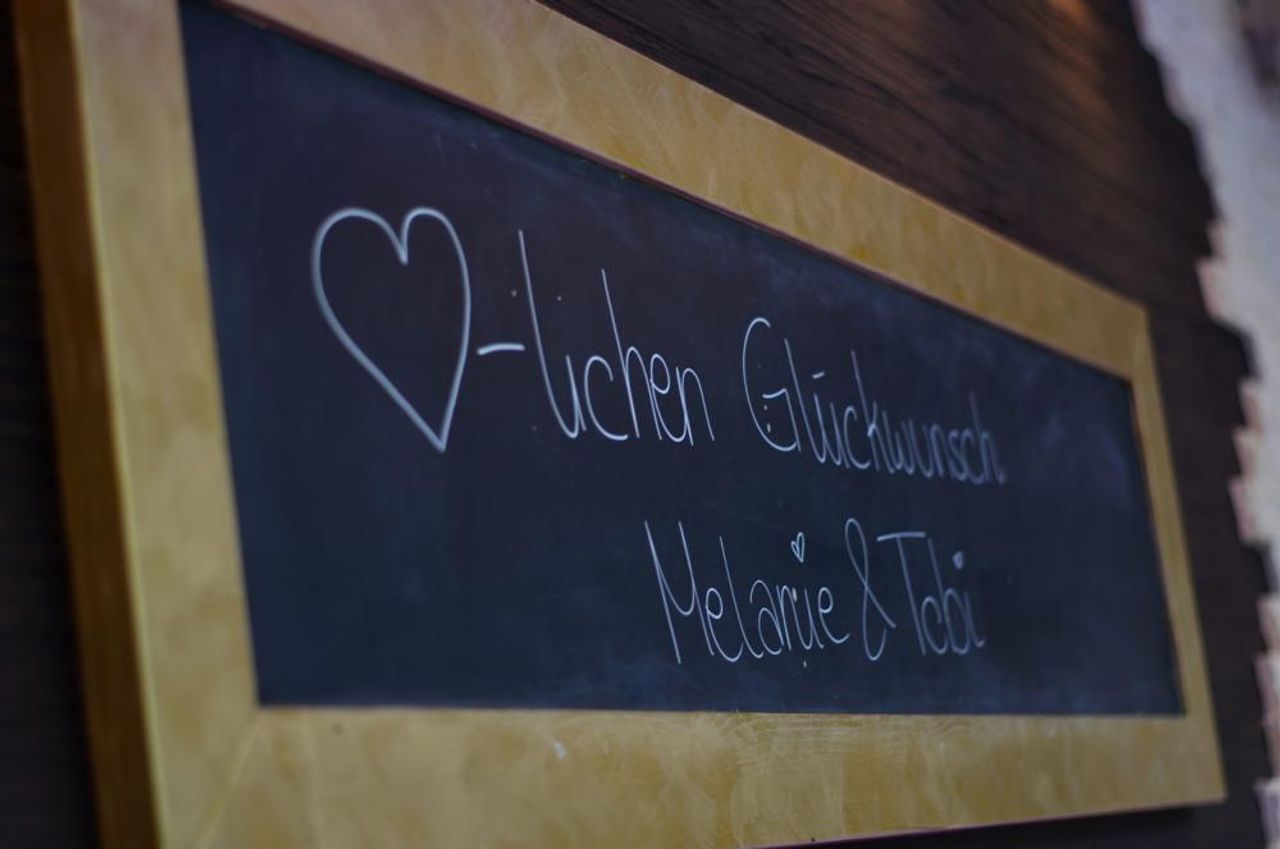 ♡-lichen Glückwunsch
Melanie & Tobi